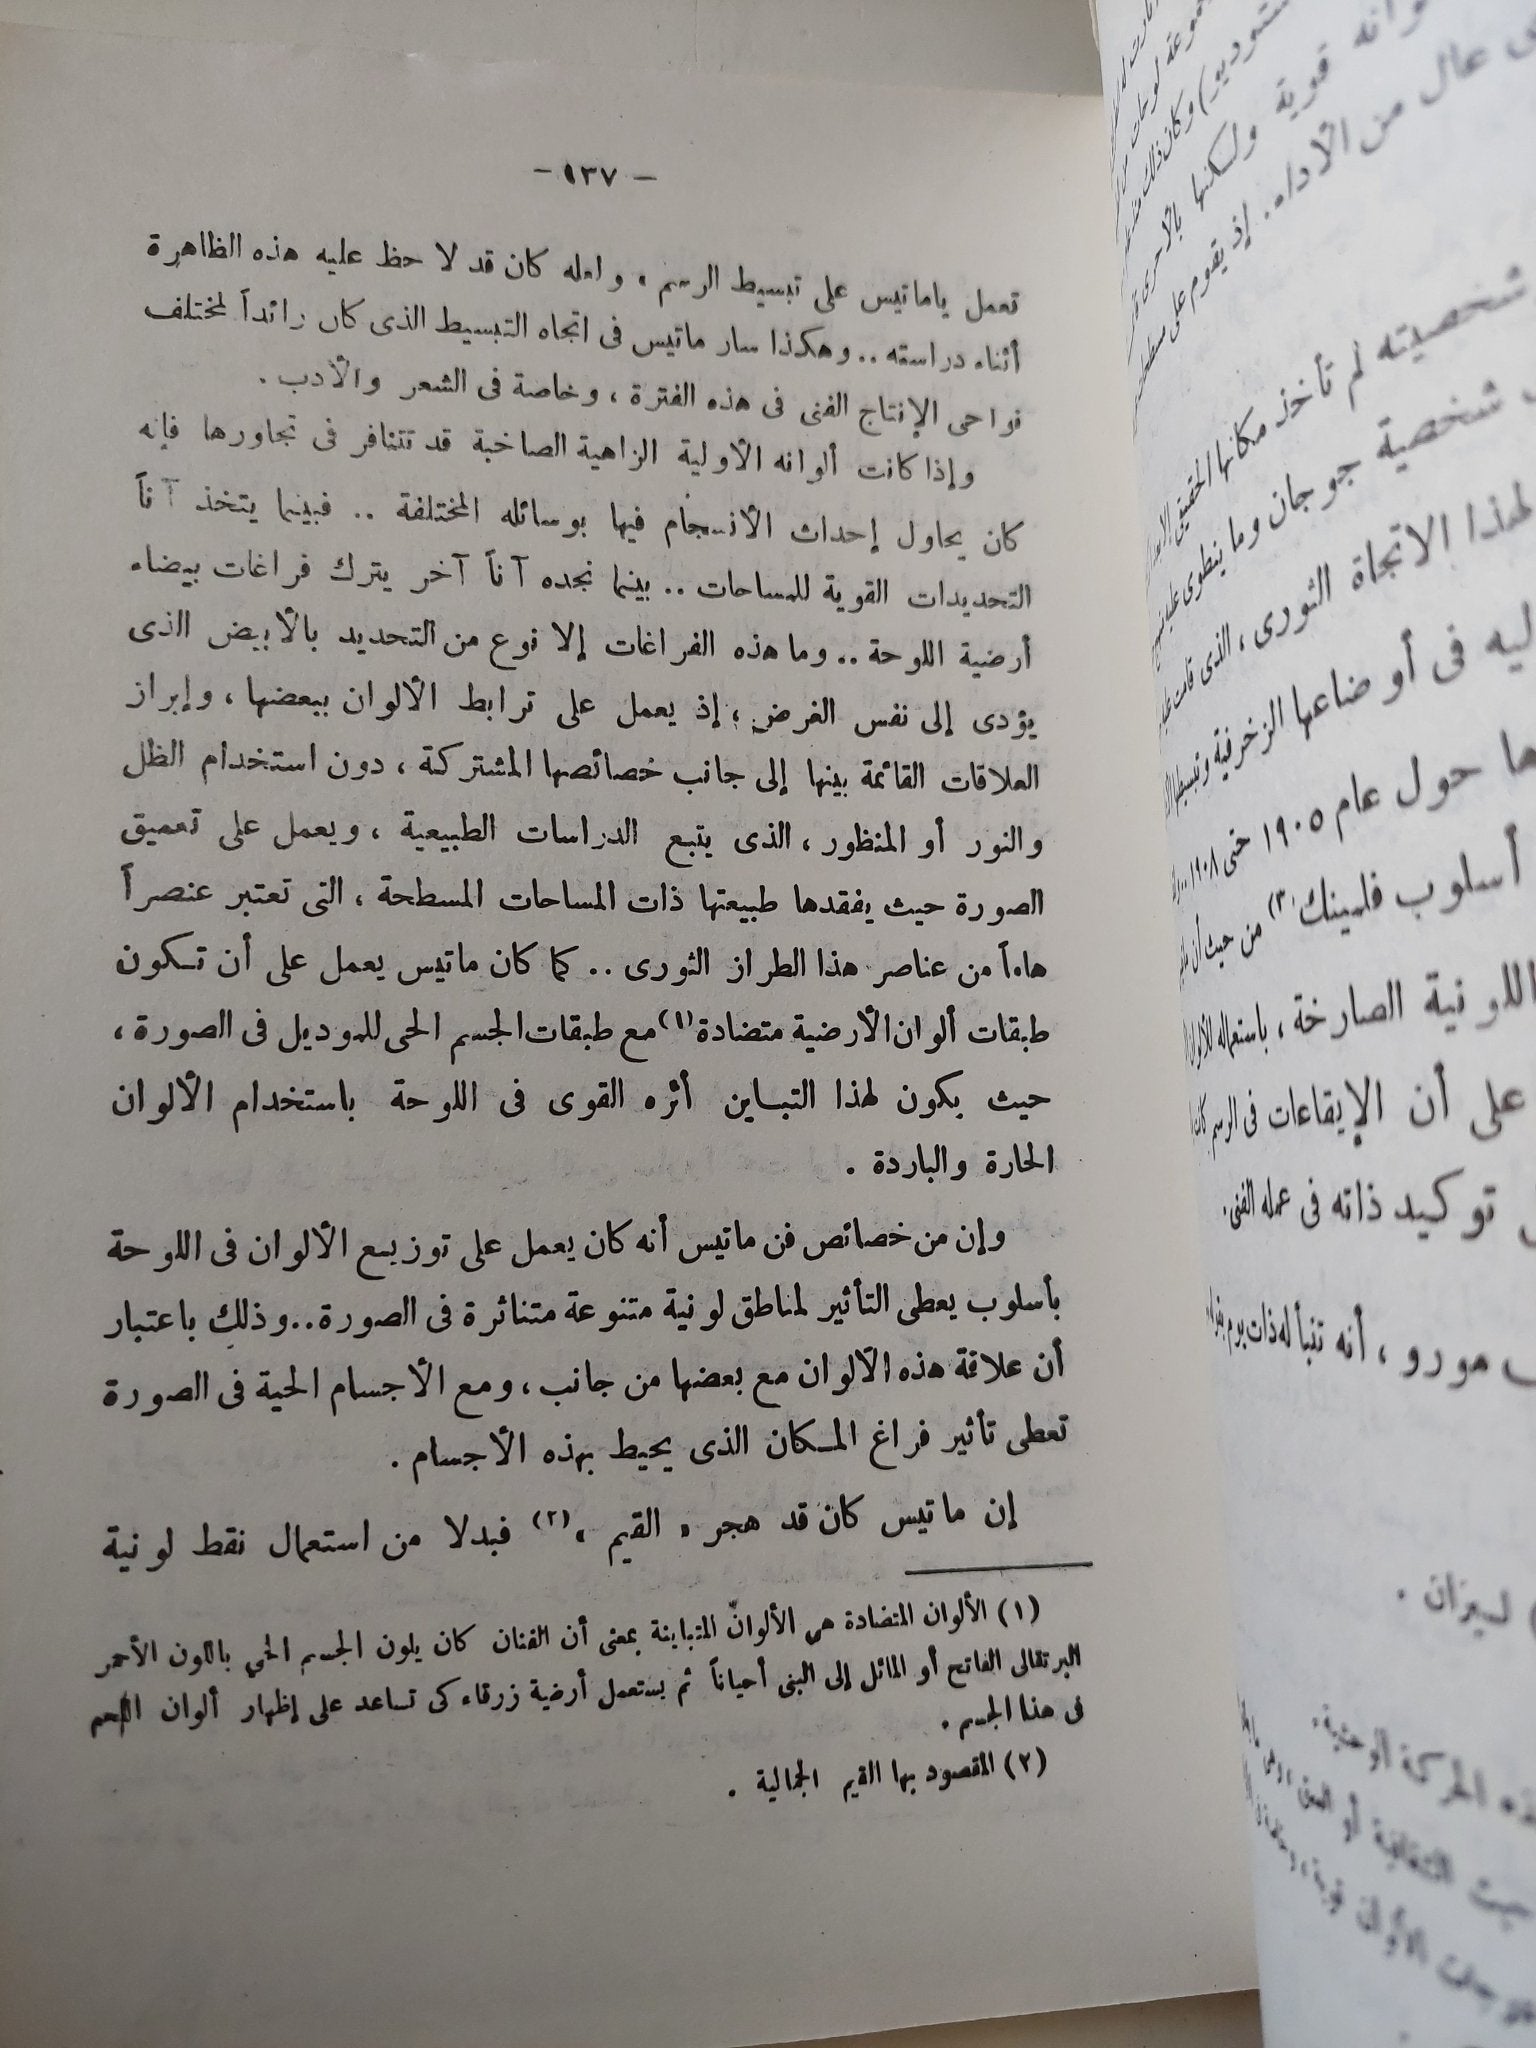 — ١٣٧ —
تعمل ياماتيس على تبسيط الرسم، ولعله كان قد لاحظ عليه هذه الظاهرة
أثناء دراسته .. وهكذا سار ماتيس فى اتجاه التبسيط الذى كان رائداً لمختلف
نواحى الإنتاج الفنى فى هذه الفترة ، وخاصة فى الشعر والأدب .
وإذا كانت ألوانه الأولية الزاهية الصاخبة قد تتنافر فى تجاورها فإنه
كان يحاول إحداث الانسجام فيها بوسائله المختلفة .. فبينما يتخذ آناً
التحديدات القوية للمساحات .. بينما نجده آناً آخر يترك فراغات بيضاء
أرضية اللوحة .. وما هذه الفراغات إلا نوع من التحديد بالأبيض الذى
يؤدى إلى نفس الغرض ؛ إذ يعمل على ترابط الألوان ببعضها ، وإبراز
العلاقات القائمة بينها إلى جانب خصائصها المشتركة ، دون استخدام الظل
والنور أو المنظور ، الذى يتبع الدراسات الطبيعية ، ويعمل على تعميق
الصورة حيث يفقدها طبيعتها ذات المساحات المسطحة ، التى تعتبر عنصراً
هاماً من عناصر هذا الطراز الثورى .. كما كان ماتيس يعمل على أن تكون
طبقات ألوان الأرضية متضادة (١) مع طبقات الجسم الحى للموديل فى الصورة ،
حيث يكون لهذا التباين أثره القوى فى اللوحة باستخدام الألوان
الحارة والباردة .
وإن من خصائص فن ماتيس أنه كان يعمل على توزيع الألوان فى اللوحة
بأسلوب يعطى التأثير لمناطق لونية متنوعة متناثرة فى الصورة .. وذلك باعتبار
أن علاقة هذه الألوان مع بعضها من جانب ، ومع الأجسام الحية فى الصورة
تعطى تأثير فراغ المكان الذى يحيط بهذه الأجسام .
إن ماتيس كان قد هجر « القيم » (٢) فبدلا من استعمال نقط لونية
(١) الألوان المتضادة هى الألوان المتباينة بمعنى أن الفنان كان يلون الجسم الحي باللون الأحمر
البرتقالى الفاتح أو المائل إلى البنى أحياناً ثم يستعمل أرضية زرقاء كى تساعد على إظهار ألوان
فى هذا الجسم .
(٢) المقصود بها القيم الجمالية .
وانه قوية ولكنها بالأحرى
عال من الأداء. إذ يقوم على
شخصيته لم تأخذ مكانها
شخصية جوجان وما ينطوى عليه
لهذا الاتجاة الثورى ، الذى
ليه فى أوضاعها الزخرفية
ها حول عام ١٩٠٥ حتى ١٩٠٨
أسلوب فلمينك (٣) من حيث أن
اللونية الصارخة ، باستعماله
على أن الإيقاعات فى الرسم
توكيد ذاته فى عمله الفنى .
مورو ، أنه تنبأ له ذات يوم
الحركة الوحشية.